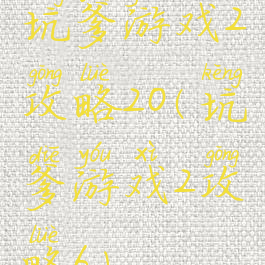 坑爹游戏2
gōng lüè kēng
攻略20(坑
diē yóu xì gōng
爹游戏2攻
lüè
略6)